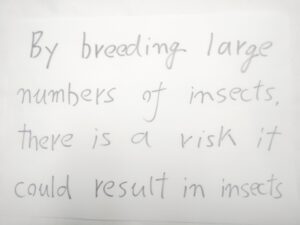 By breeding large
numbers of insects,
there is a risk it
could result in insects